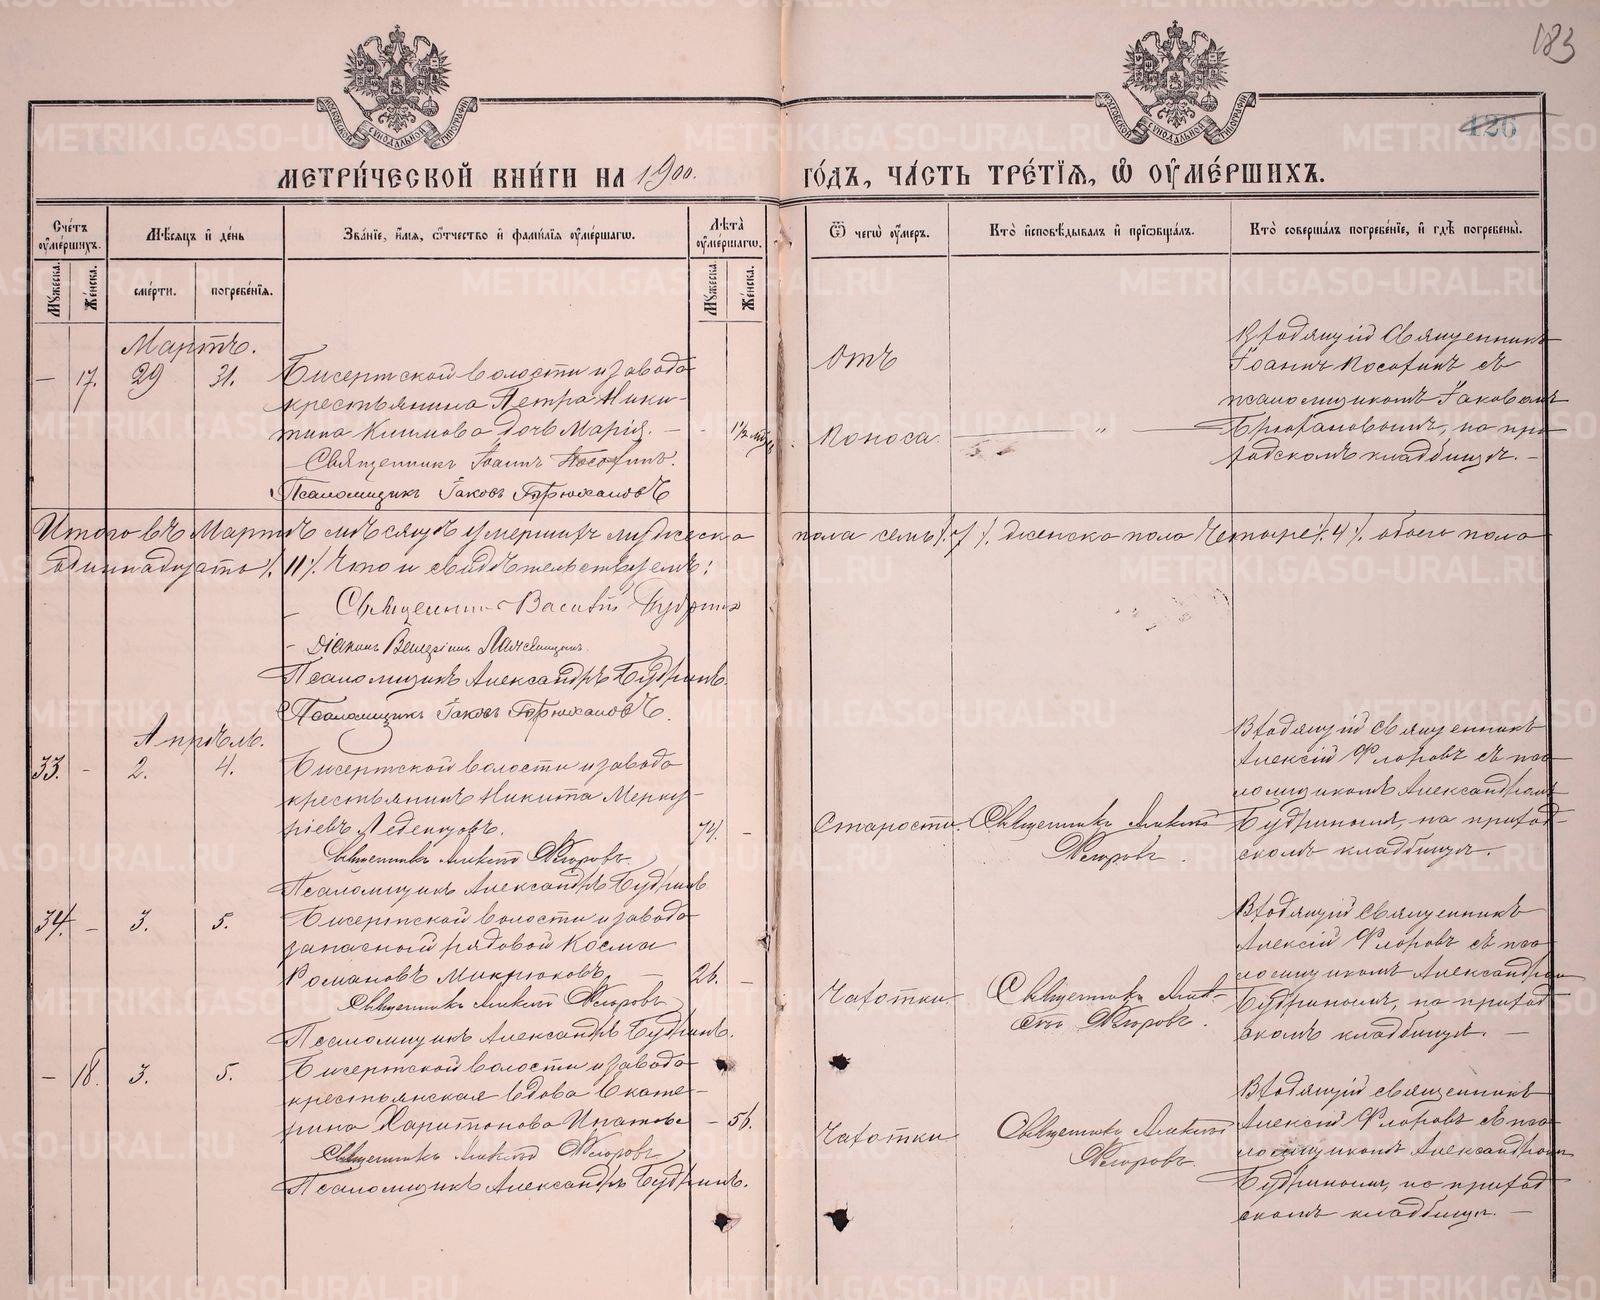 183
126
МЕТРИ́ЧЕСКОЙ КНИ́ГИ НА 1900.
ГО́ДЪ, ЧА́СТЬ ТРЕ́ТІѦ, Ѡ ОУМЕ́РШИХЪ.
Сче́тъ оумершихъ.
Мѣсяцъ и день
Званіе, имя, отчество и фамилія оумершагѡ.
Лѣта оумершагѡ.
Ѿ чегѡ оумеръ.
Кто исповѣдывалъ и пріобщалъ.
Кто совершалъ погребеніе, и гдѣ погребены.
Мужеска.
Женска.
смерти.
погребенія.
Мужеска.
Женска.
Мартъ.
— 17. 29 31.
Бисертской волости и завода
крестьянина Петра Ники-
тина Климова дочь Марія. — - 1½ мѣс.
Священникъ Іоаннъ
Псаломщикъ Іаковъ Брюхановъ
Отъ
Поноса — „ —
Приходящій Священникъ
Іоаннъ съ
псаломщикомъ Іаковомъ
Брюхановымъ, на при-
ходскомъ кладбищѣ. —
Итого въ Мартѣ мѣсяцѣ умершихъ мужеска
пола семь /. 7 /. женска пола Четыре /. 4 /. обоего пола
одиннадцать /. 11 /. Что и свидѣтельствуемъ:
Священникъ Василій Будринъ
Діаконъ Валеріанъ
Псаломщикъ Александръ Будринъ.
Псаломщикъ Іаковъ Брюхановъ.
Апрѣль.
33. - 2. 4.
Бисертской волости и завода
крестьянинъ Никита Мерку-
ріевъ Леденцовъ. 74. -
Священникъ Алексій Флоровъ.
Псаломщикъ Александръ Будринъ
Старости.
Священникъ Алексій
Флоровъ.
Входящій священникъ
Алексій Флоровъ съ пса-
ломщикомъ Александромъ
Будринымъ, на приход-
скомъ кладбищѣ.
34. - 3. 5.
Бисертской волости и завода
запасный рядовой Косма
Романовъ Микрюковъ. — 26. -
Священникъ Алексій Флоровъ
Псаломщикъ Александръ Будринъ.
Чахотки.
Священникъ Алек-
сій Флоровъ.
Входящій Священникъ
Алексій Флоровъ съ пса-
ломщикомъ Александромъ
Будринымъ, на приход-
скомъ кладбищѣ. —
— 18. 3. 5.
Бисертской волости и завода
крестьянская вдова Екате-
рина Харитонова Ипатова - 56.
Священникъ Алексій Флоровъ
Псаломщикъ Александръ Будринъ.
Чахотки
Священникъ Алексій
Флоровъ.
Входящій священникъ
Алексій Флоровъ съ пса-
ломщикомъ Александромъ
Будринымъ, на приход-
скомъ кладбищѣ. —
METRIKI.GASO-URAL.RU